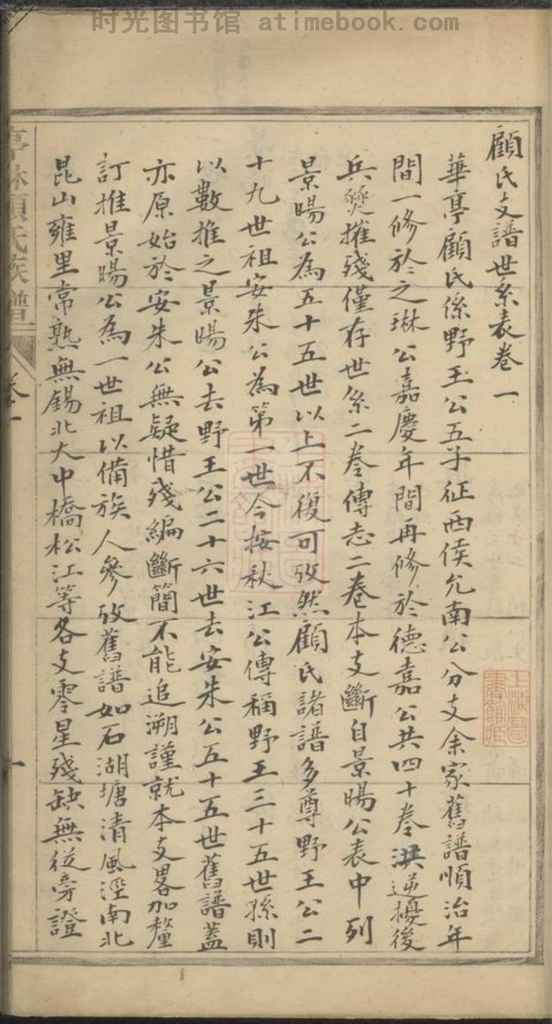 时光图书馆 atimebook.com
顧氏支譜世系表卷一
華亭顧氏係野王公五子征西侯允南公分支余家舊譜順治年
間一修於之琳公嘉慶年間再修於德嘉公共四十卷洪逆擾後
兵燹摧殘僅存世系二卷傳志二卷本支斷自景暘公表中列
景暘公為五十五世以上不復可攷然顧氏諸譜多尊野王公二
十九世祖安朱公為第一世今按秋江公傳稱野王三十五世孫則
以數推之景暘公去野王公二十六世去安朱公五十五世舊譜蓋
亦原始於安朱公無疑惜殘編斷簡不能追溯謹就本支畧加釐
訂推景暘公為一世祖以備族人參攷舊譜如石湖塘清風涇南北
昆山雍里常熟無錫北大中橋松江等各支零星殘缺無從旁證
亭林顧氏族譜 卷一 一